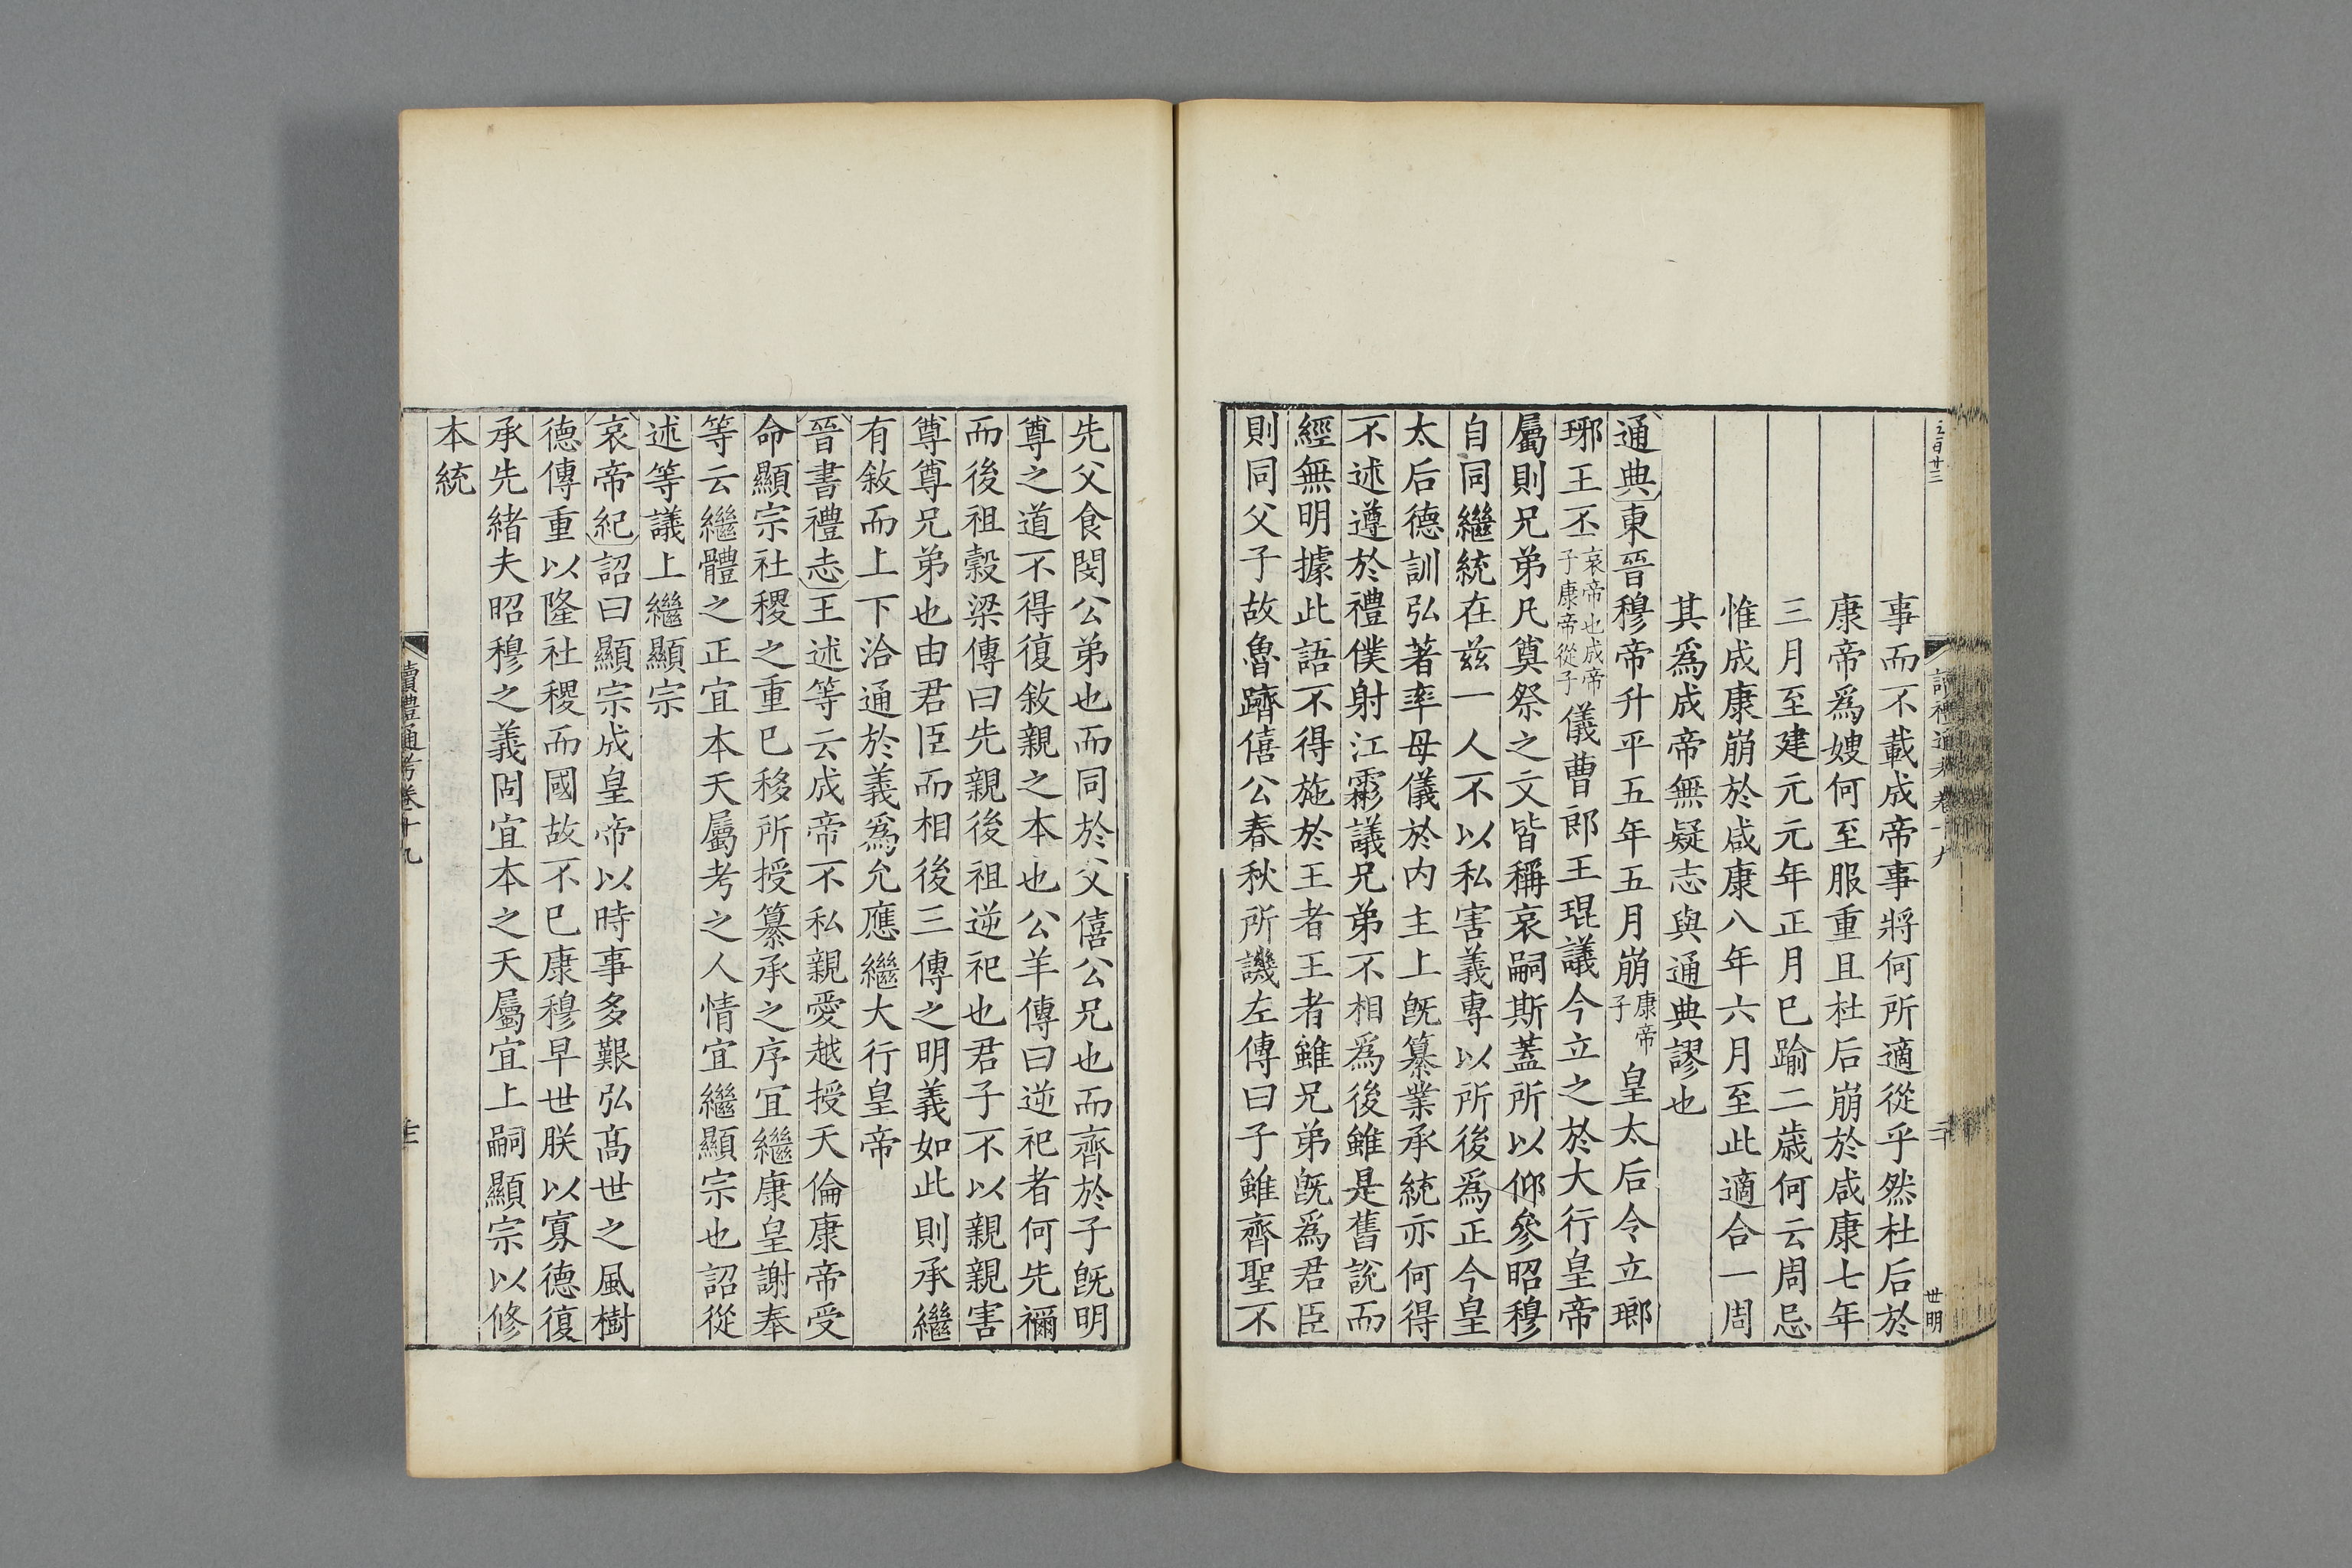 事而不載成帝事將何所適從乎然杜后於
康帝爲嫂何至服重且杜后崩於咸康七年
三月至建元元年正月巳踰二歳何云周忌
惟成康崩於咸康八年六月至此適合一周
其爲成帝無疑志與通典謬也
通典東晉穆帝升平五年五月崩康帝子皇太后令立瑯
琊王丕哀帝也成帝子康帝從子儀曹郎王琨議今立之於大行皇帝
屬則兄弟凡奠祭之文皆稱哀嗣斯蓋所以仰參昭穆
自同繼統在兹一人不以私害義專以所後爲正今皇
太后德訓弘著率母儀於内主上旣纂業承統亦何得
不述遵於禮僕射江霦議兄弟不相爲後雖是舊說而
經無明據此語不得施於王者王者雖兄弟旣爲君臣
則同父子故魯躋僖公春秋所譏左傳曰子雖齊聖不
先父食閔公弟也而同於父僖公兄也而齊於子旣明
尊之道不得復敘親之本也公羊傳曰逆祀者何先禰
而後祖穀梁傳曰先親後祖逆祀也君子不以親親害
尊尊兄弟也由君臣而相後三傳之明義如此則承繼
有敘而上下洽通於義爲允應繼大行皇帝
晉書禮志王述等云成帝不私親愛越授天倫康帝受
命顯宗社稷之重巳移所授纂承之序宜繼康皇謝奉
等云繼體之正宜本天屬考之人情宜繼顯宗也詔從
述等議上繼顯宗
哀帝紀詔曰顯宗成皇帝以時事多艱弘髙世之風樹
德傳重以隆社稷而國故不巳康穆早世朕以寡德復
承先緒夫昭穆之義固宜本之天屬宜上嗣顯宗以修
本統
讀禮通考卷十九